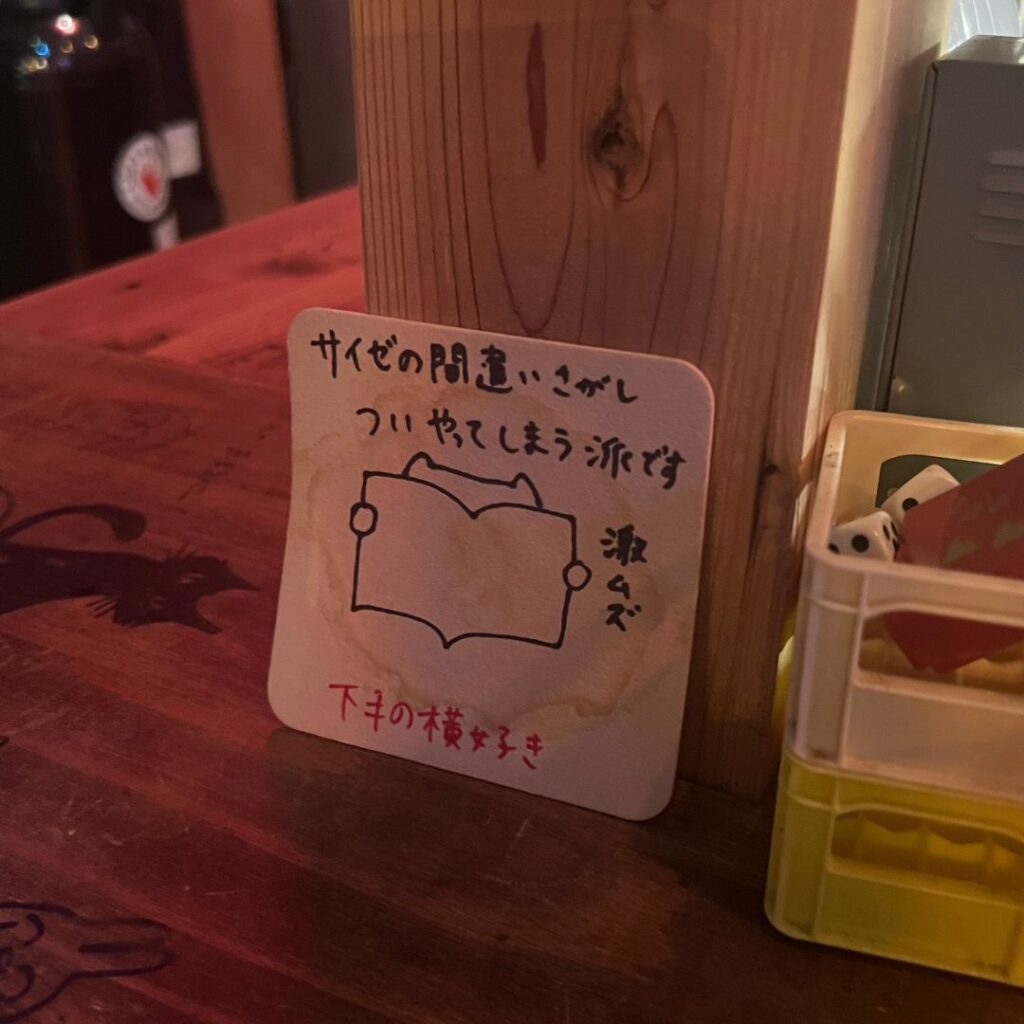 サイゼの間違いさがし
ついやってしまう派です
激ムズ
下手の横好き